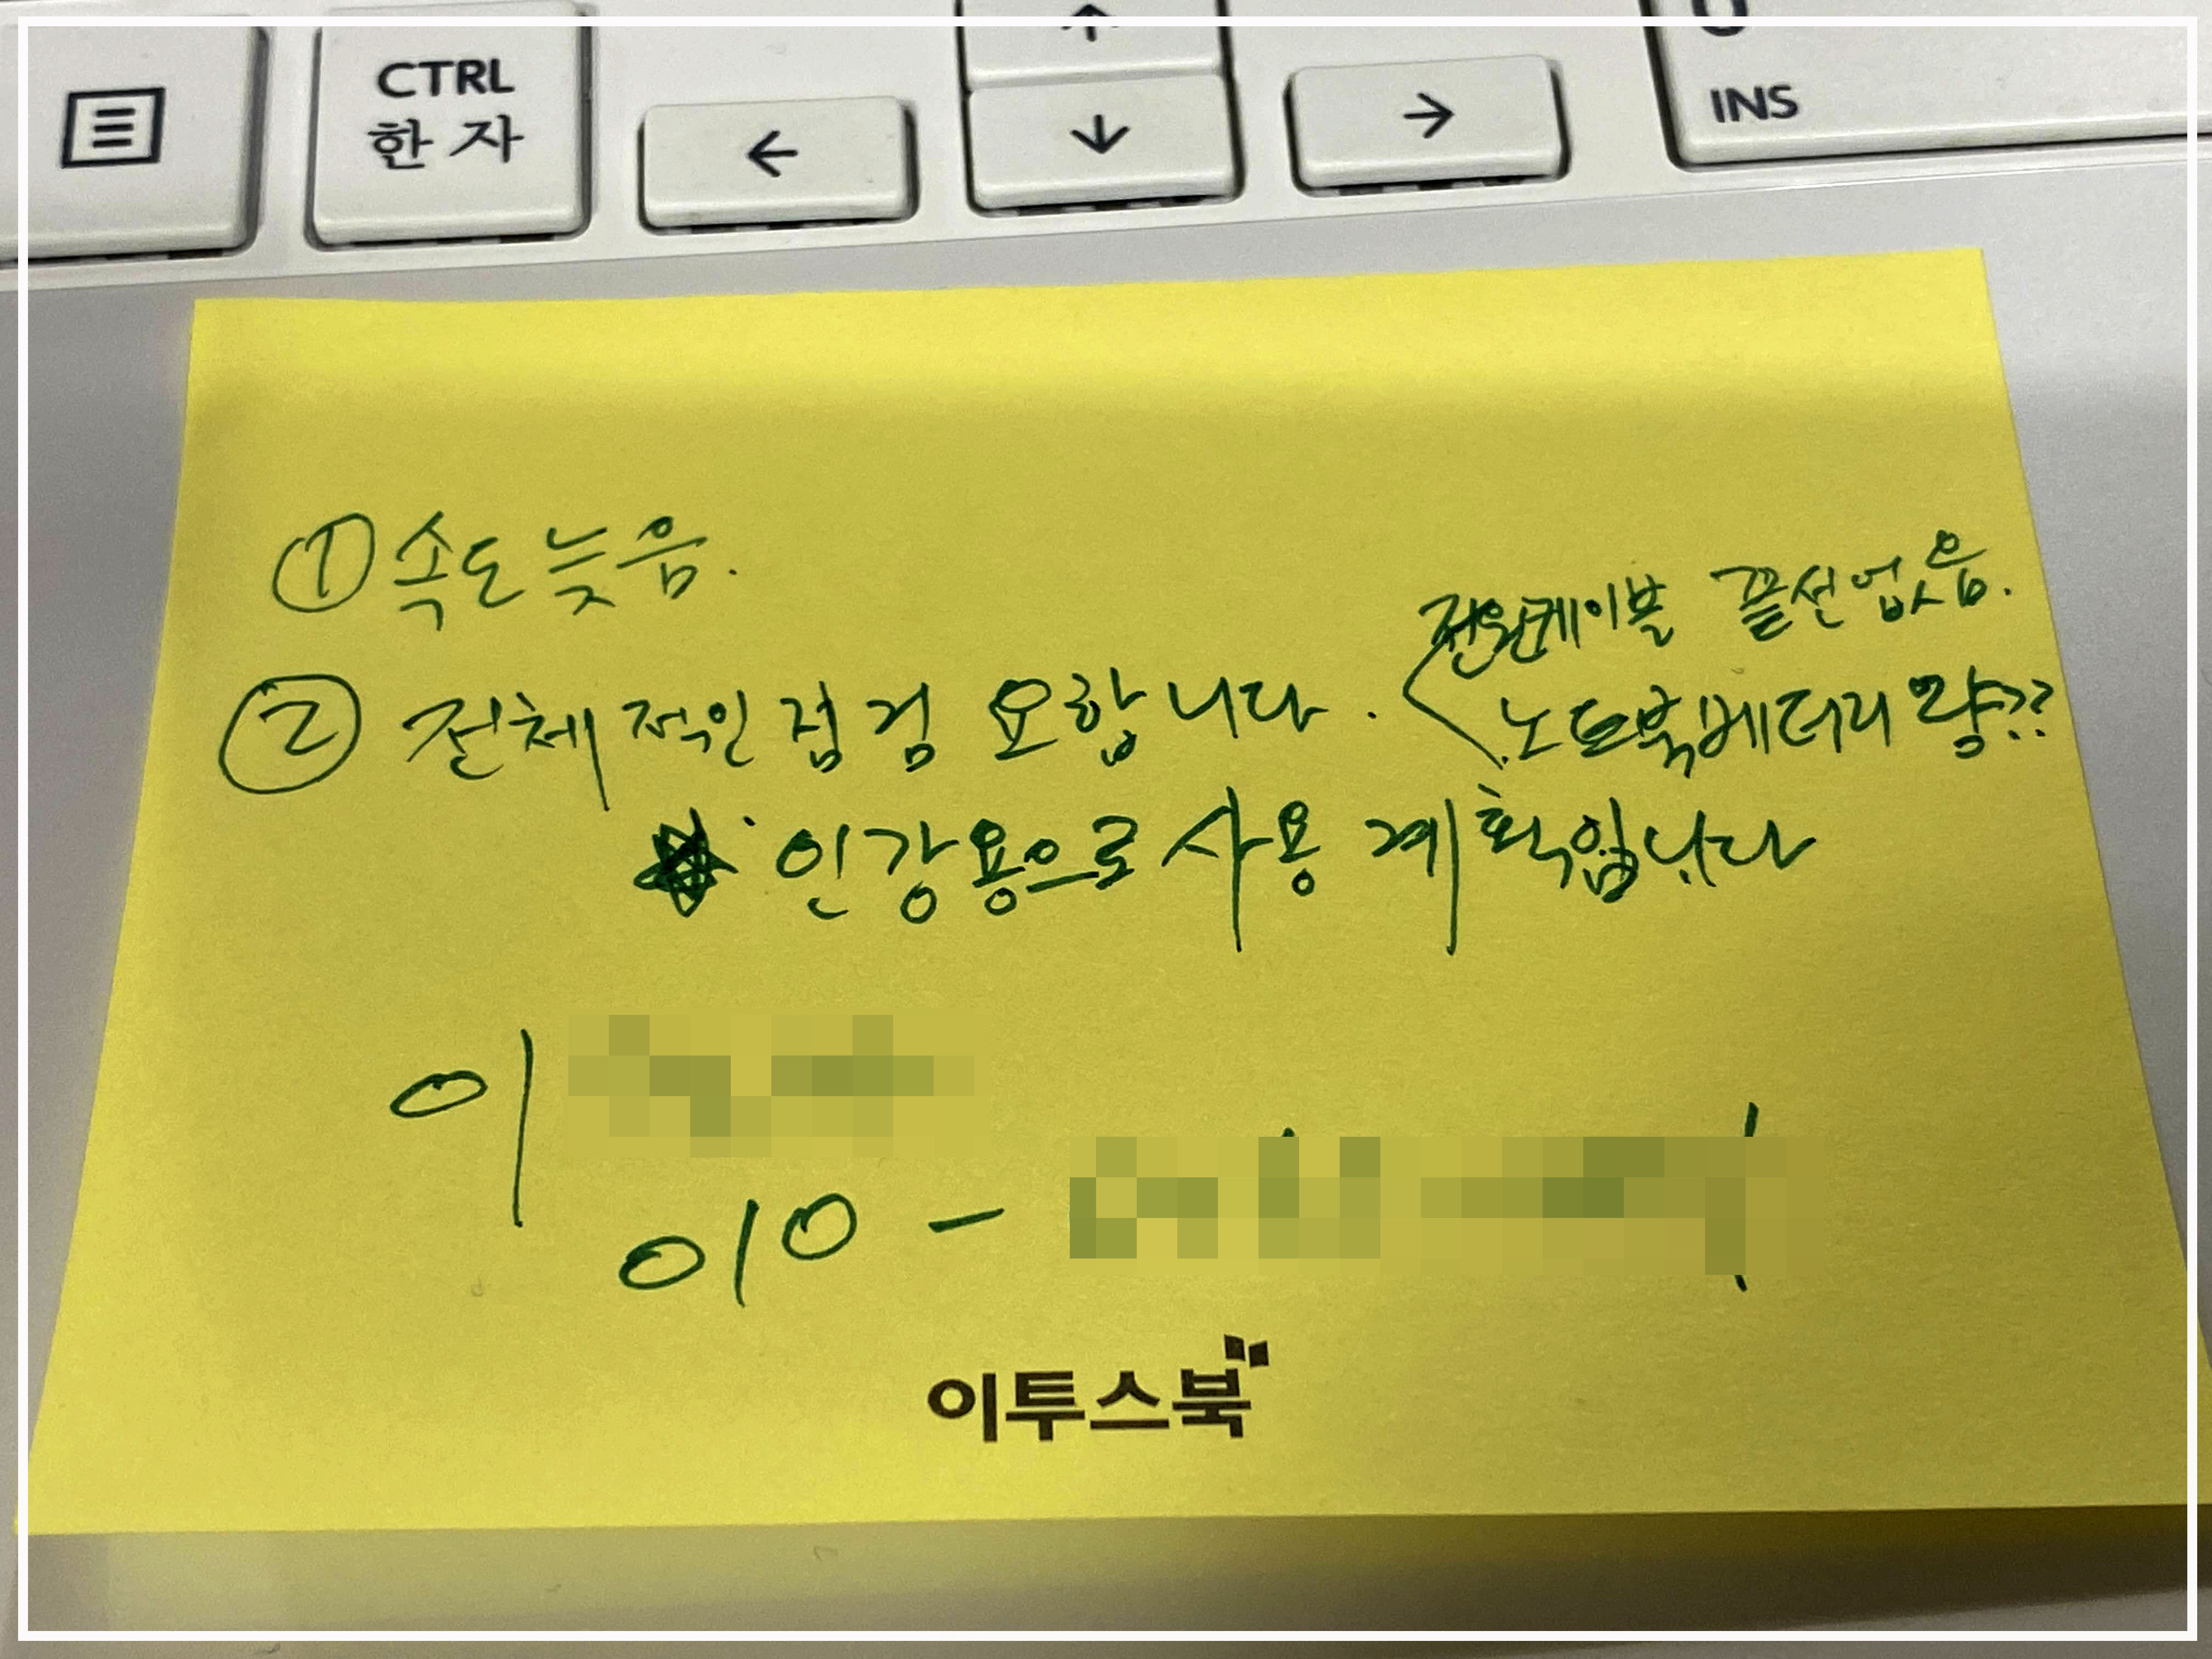 CTRL
한자
←
↑
↓
→
INS
① 속도 늦음.
② 전체적인 점검 요합니다.
전원케이블 끝선 없음.
노트북베터리 량??
★ 인강용으로 사용 계획입니다
이
010 -
이투스북